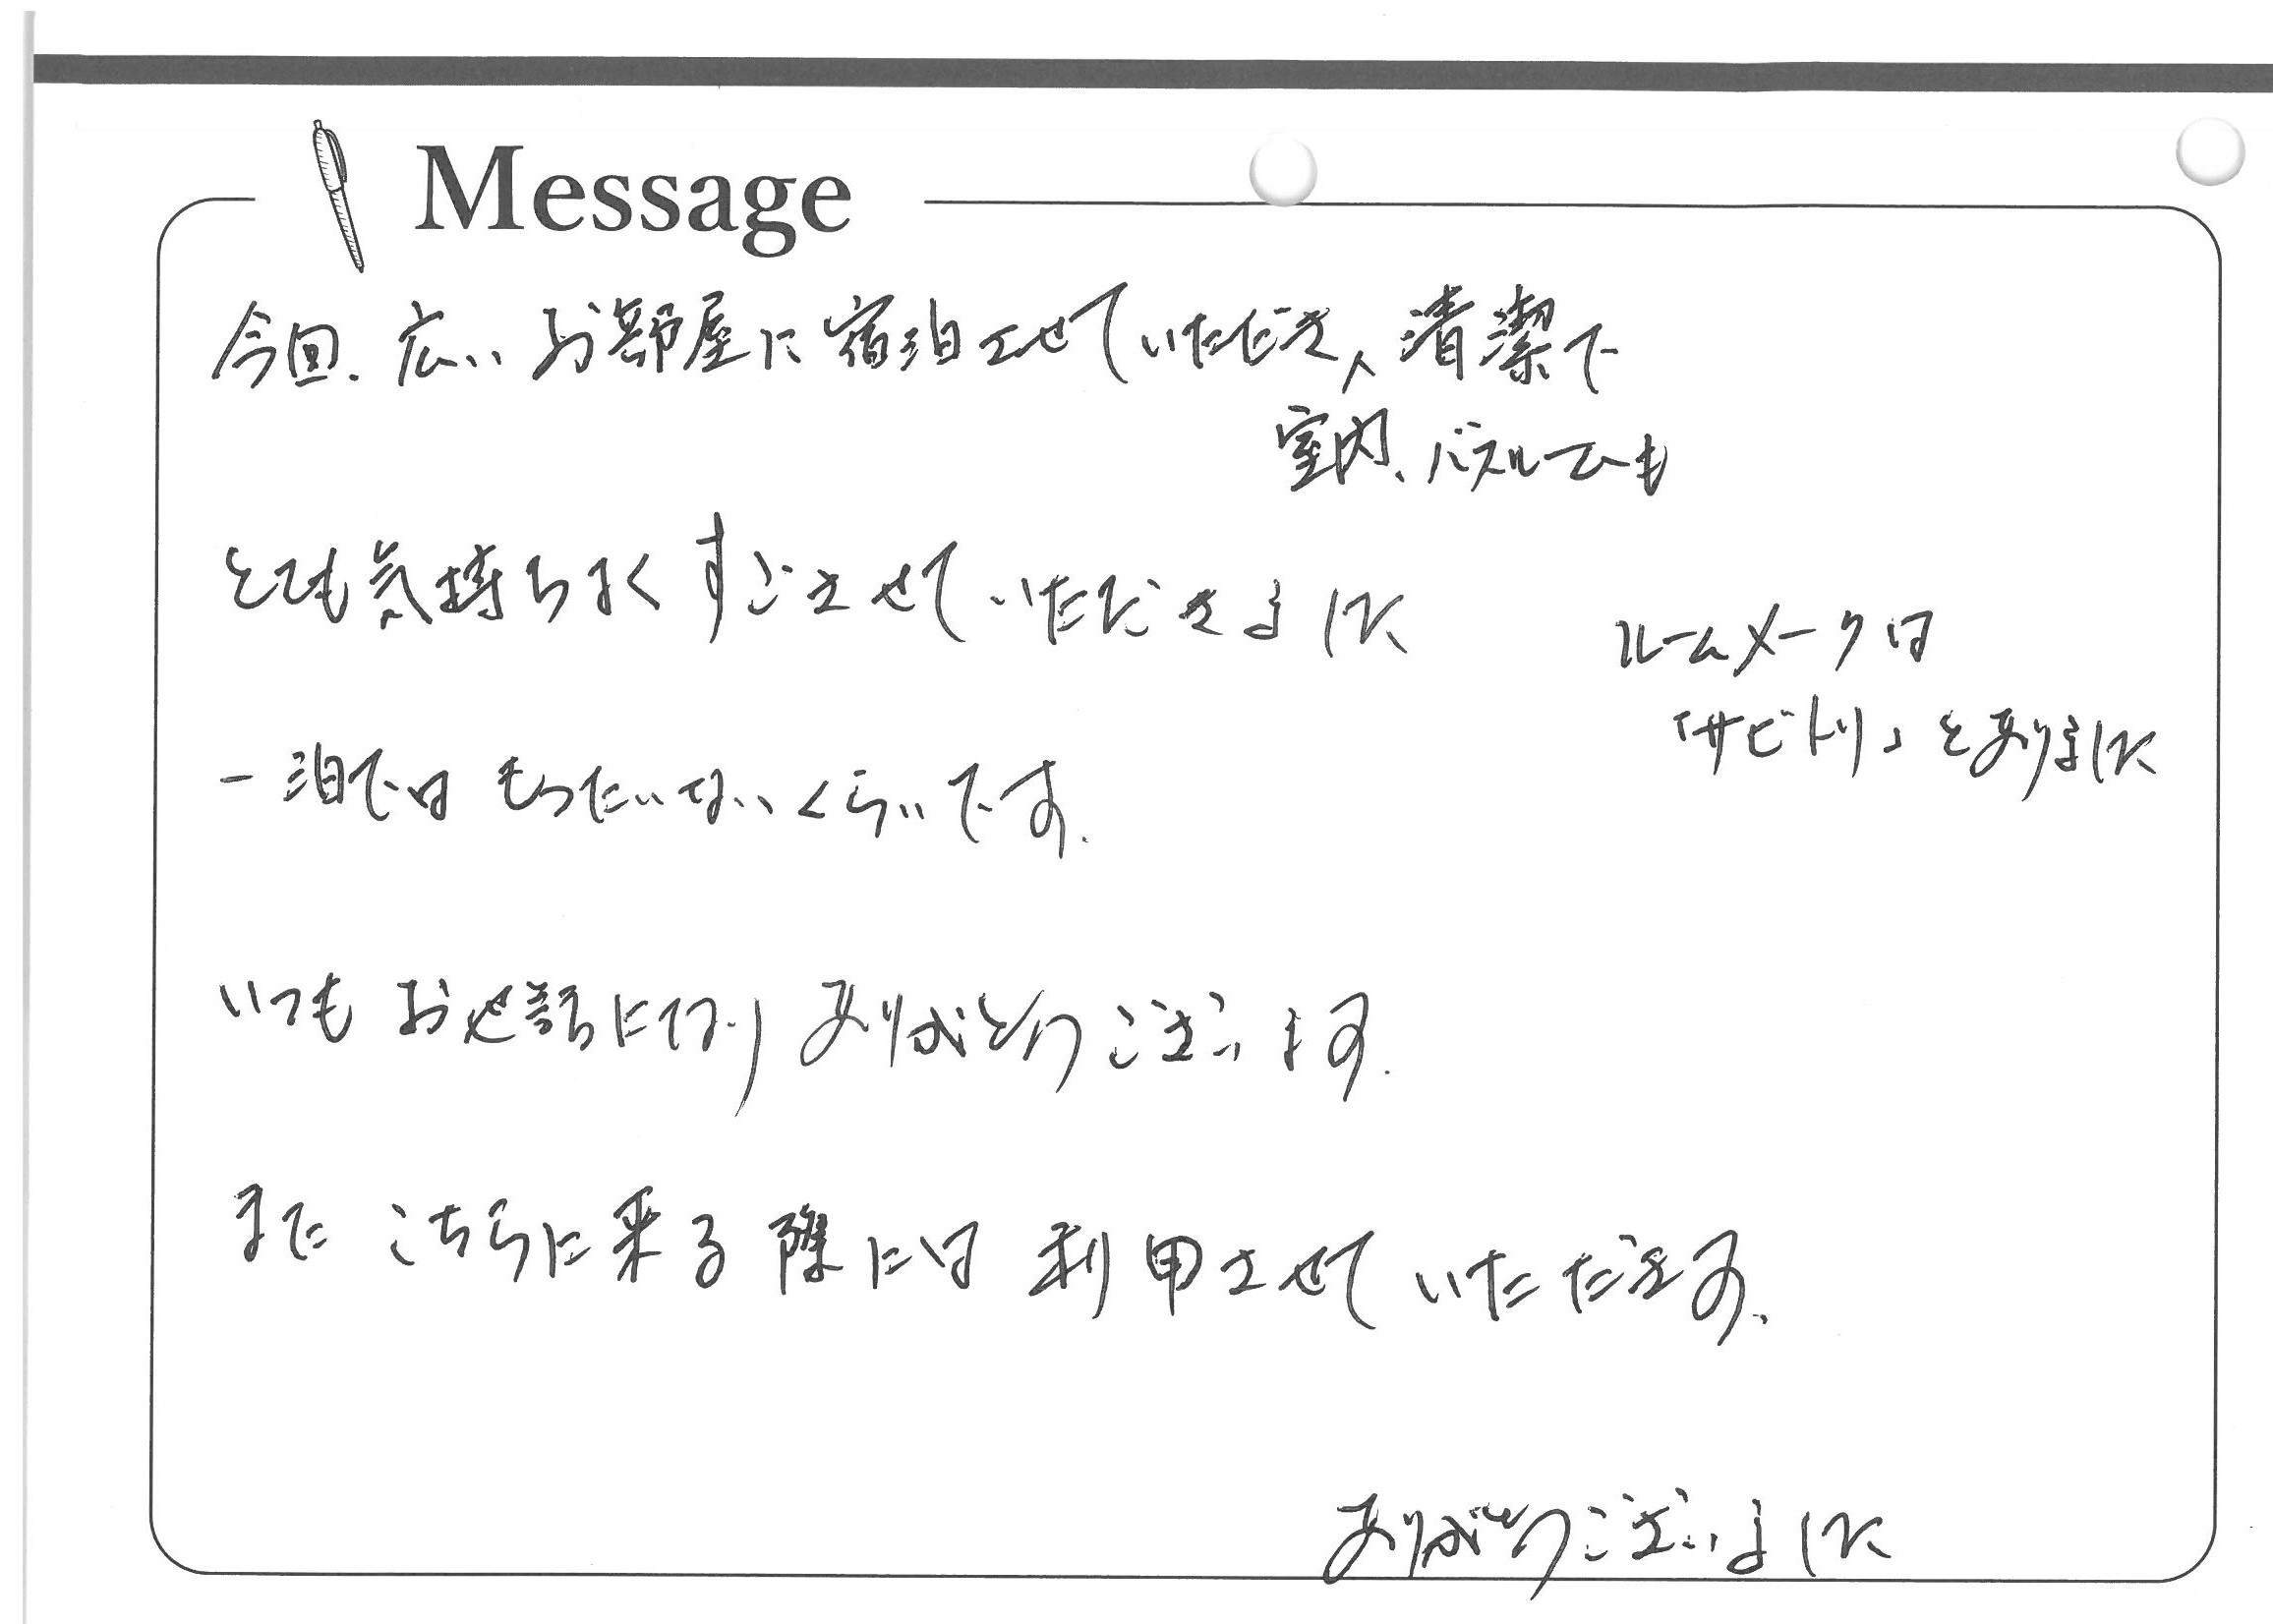 Message
今回、広いお部屋に宿泊させていただき、清潔で
室内、バスルームも
とても気持ちよくすごさせていただきました
ルームメークは
「サビトリ」とありました
一泊ではもったいないくらいです。
いつもお世話になりありがとうございます。
またこちらに来る際には利用させていただきます。
ありがとうございました